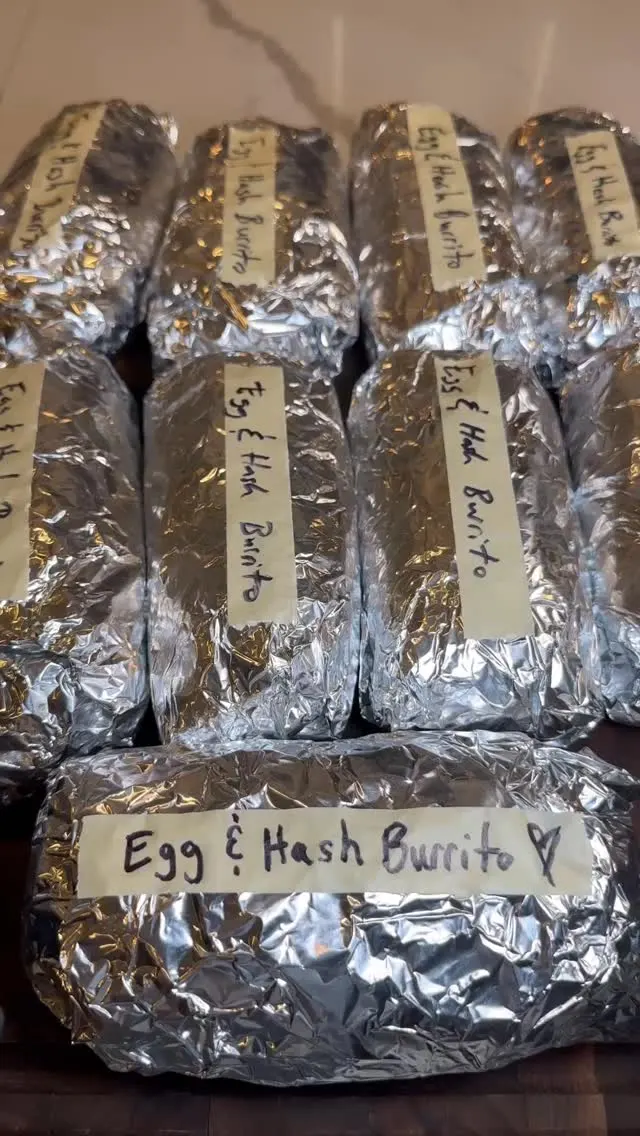 Egg & Hash Burrito
Egg & Hash Burrito
Egg & Hash Burrito
Egg & Hash
Egg &
Egg & Hash Burrito
Egg & Hash Burrito
Egg & Hash Burrito ♡